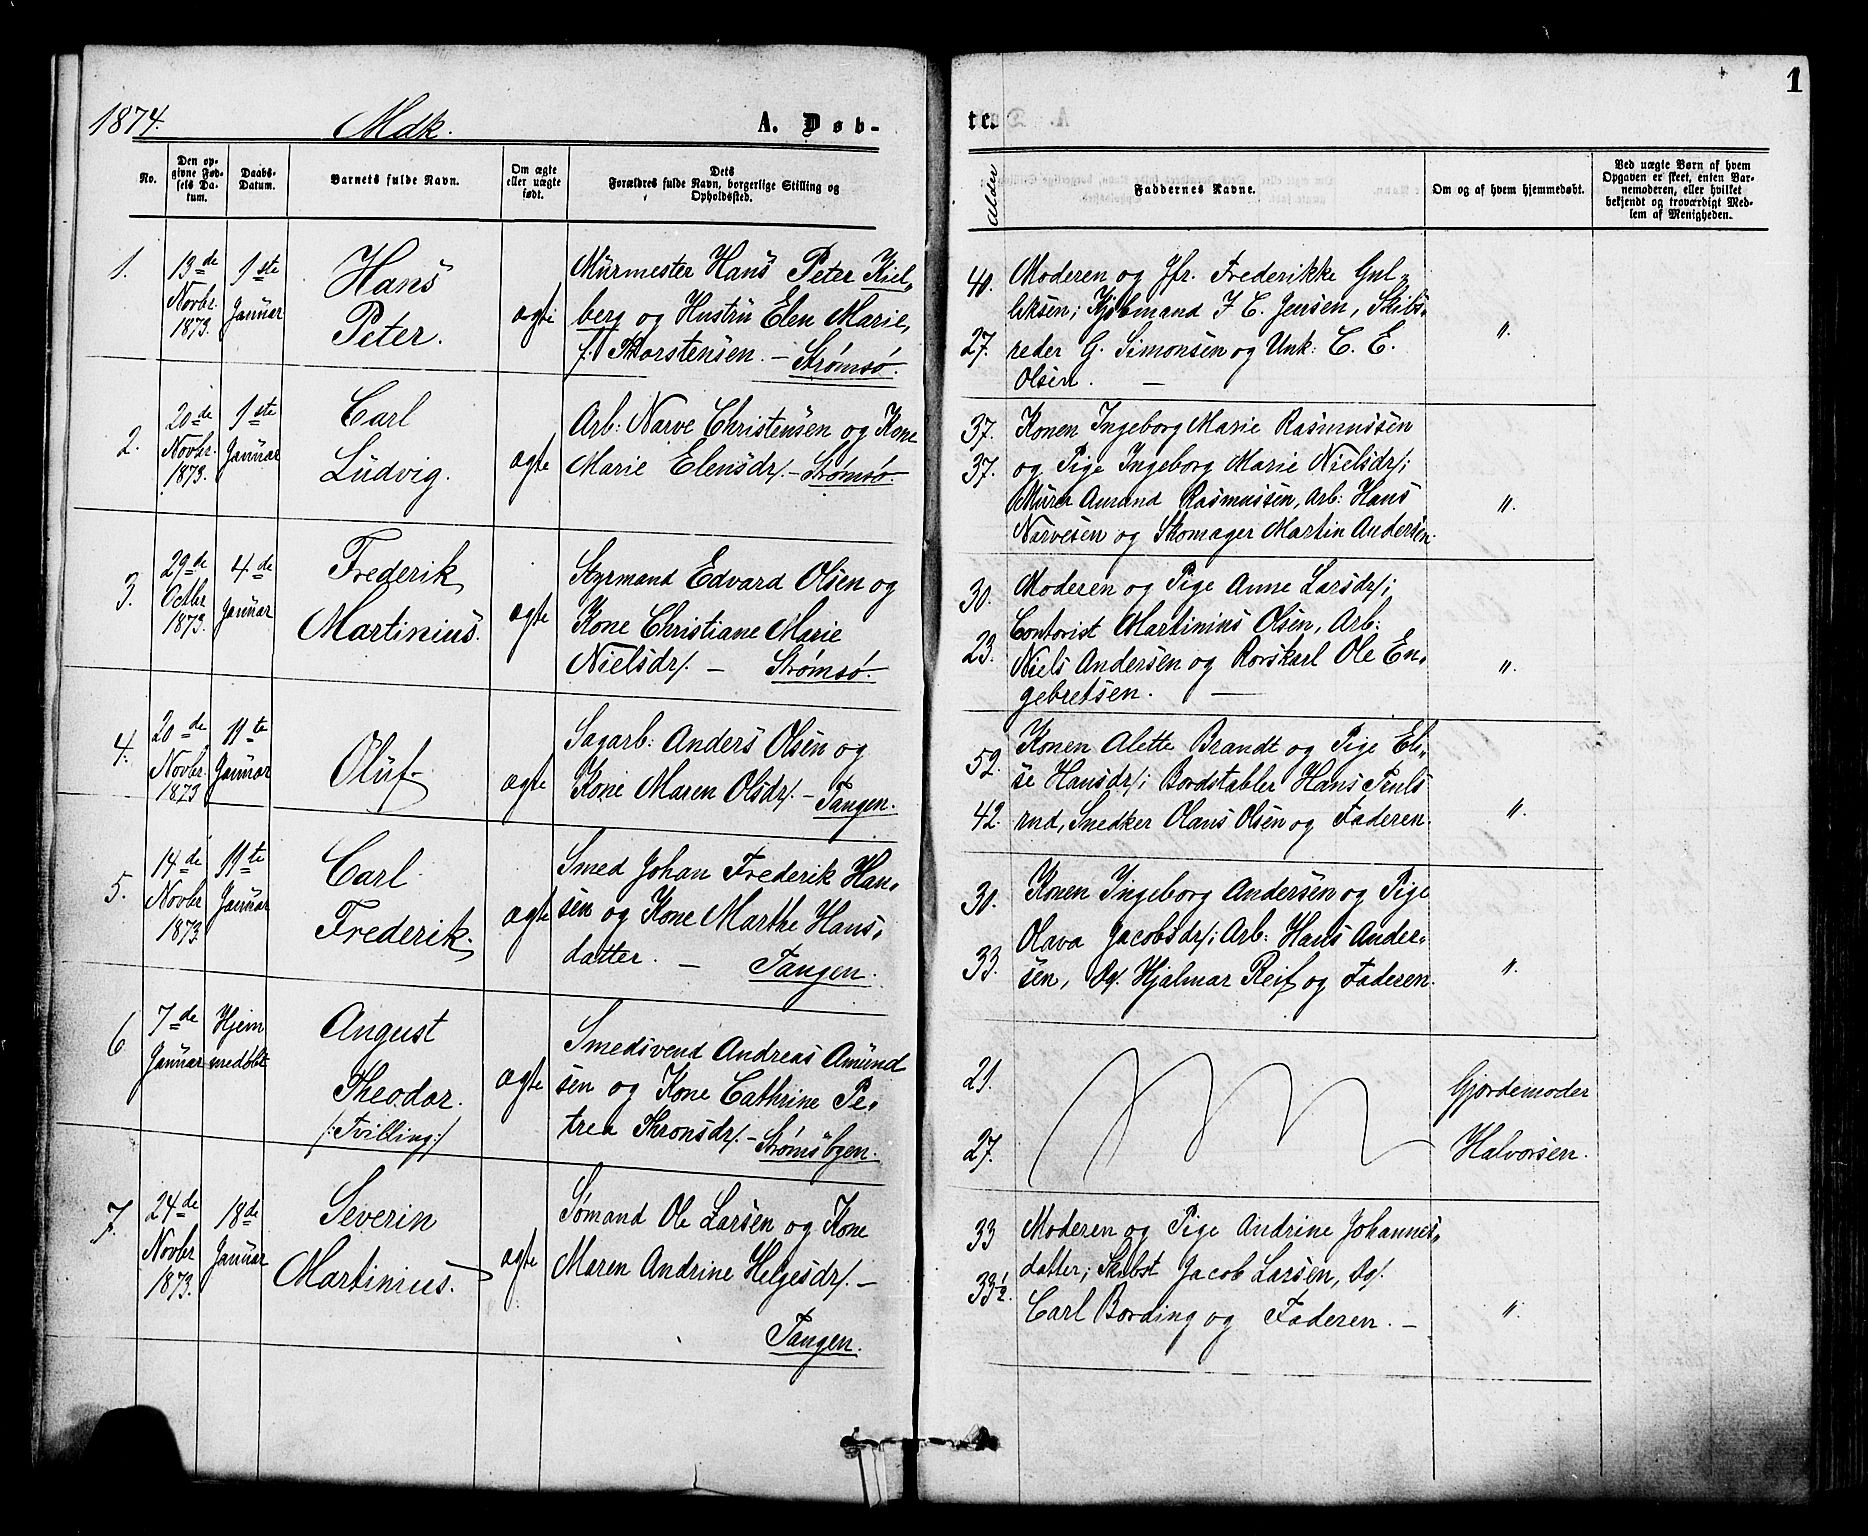 1
1874.
Mdk.
A. Døb-
te.
No.
Den op-
givne Fød-
sels Da-
tum.
Daabs-
Datum.
Barnets fulde Navn.
Om ægte
eller uægte
født.
Dets
Forældres fulde Navn, borgerlige Stilling og
Opholdssted.
Alder
Faddernes Navne.
Om og af hvem hjemmedøbt.
Ved uægte Børn af hvem
Opgaven er skeet, enten Bar-
nemoderen, eller hvilket
bekjendt og troværdigt Med-
lem af Menigheden.
1.
13de
Novbr.
1873.
1ste
Januar
Hans
Peter.
ægte
Murmester Hans Peter Kiel-
berg og Hustru Elen Marie,
f. Thorstensen. - Strømsø.
40.
27.
Moderen og Jfr. Frederikke Gul-
liksen; Kjøbmand F C. Jensen, Skibs-
reder G. Simonsen og Unk: C. E.
Olsen. -
"
2.
20de
Novbr.
1873.
1ste
Januar
Carl
Ludvig.
ægte
Arb: Narve Christensen og Kone
Marie Elensdr/. - Strømsø.
37.
37.
Konen Ingeborg Marie Rasmussen
og Pige Ingeborg Marie Nielsdr/;
Murer Amund Rasmussen, Arb: Hans
Narvesen og Skomager Martin Andersen.
"
3.
29de
Octbr
1873.
4de
Januar
Frederik
Martinius.
ægte
Styrmand Edvard Olsen og
Kone Christiane Marie
Nielsdr/. - Strømsø.
30.
23.
Moderen og Pige Anne Larsdr/;
Contorist Martinius Olsen, Arb:
Niels Andersen og Rorskarl Ole En-
gebretsen. -
"
4.
20de
Novbr.
1873
11te
Januar
Oluf
ægte
Sagarb: Anders Olsen og
Kone Maren Olsdr/. - Tangen.
52.
42.
Konen Alette Brandt og Pige El-
se Hansdr/; Bordstabler Hans Pruls
rud, Snedker Olaus Olsen og Faderen.
"
5.
14de
Novbr
1873.
11te
Januar
Carl
Frederik.
ægte
Smed Johan Frederik Han-
sen og Kone Marthe Hans-
datter. - Tangen.
30.
33.
Konen Ingeborg Andersen og Pige
Olava Jacobsdr/; Arb: Hans Ander-
sen, Do/. Hjalmar Reif og Faderen.
"
6
7de
Januar
Hjem
medøbt
August
Theodor.
/:Tvilling:/
ægte
Smedsvend Andreas Amund
sen og Kone Cathrine Pe-
trea Thronsdr/. - Strømsbyen.
21.
27.
Gjordemoder
Halvorsen.
7.
24de
Novbr
1873.
18de
Januar
Severin
Martinius.
ægte
Sømand Ole Larsen og Kone
Maren Andrine Helgesdr/. -
Tangen.
33
33½.
Moderen og Pige Andrine Johannes-
datter; Skibst Jacob Larsen, Do/.
Carl Bording og Faderen. -
"